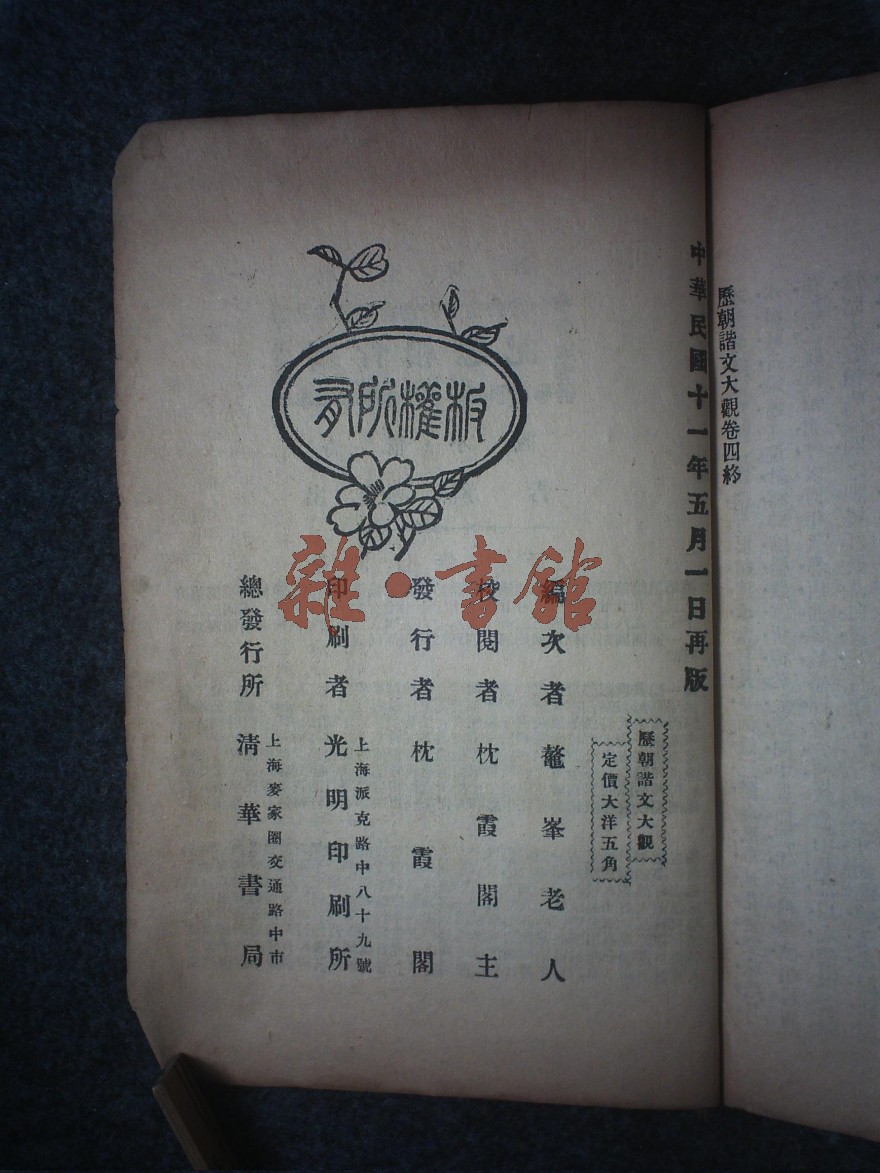 歷朝諧文大觀卷四終
中華民國十一年五月一日再版
歷朝諧文大觀
定價大洋五角
板權所有
編次者 鼇峯老人
校閱者 枕霞閣主
發行者 枕霞閣
印刷者 光明印刷所
上海派克路中八十九號
總發行所 清華書局
上海麥家圈交通路中市
雜·書館